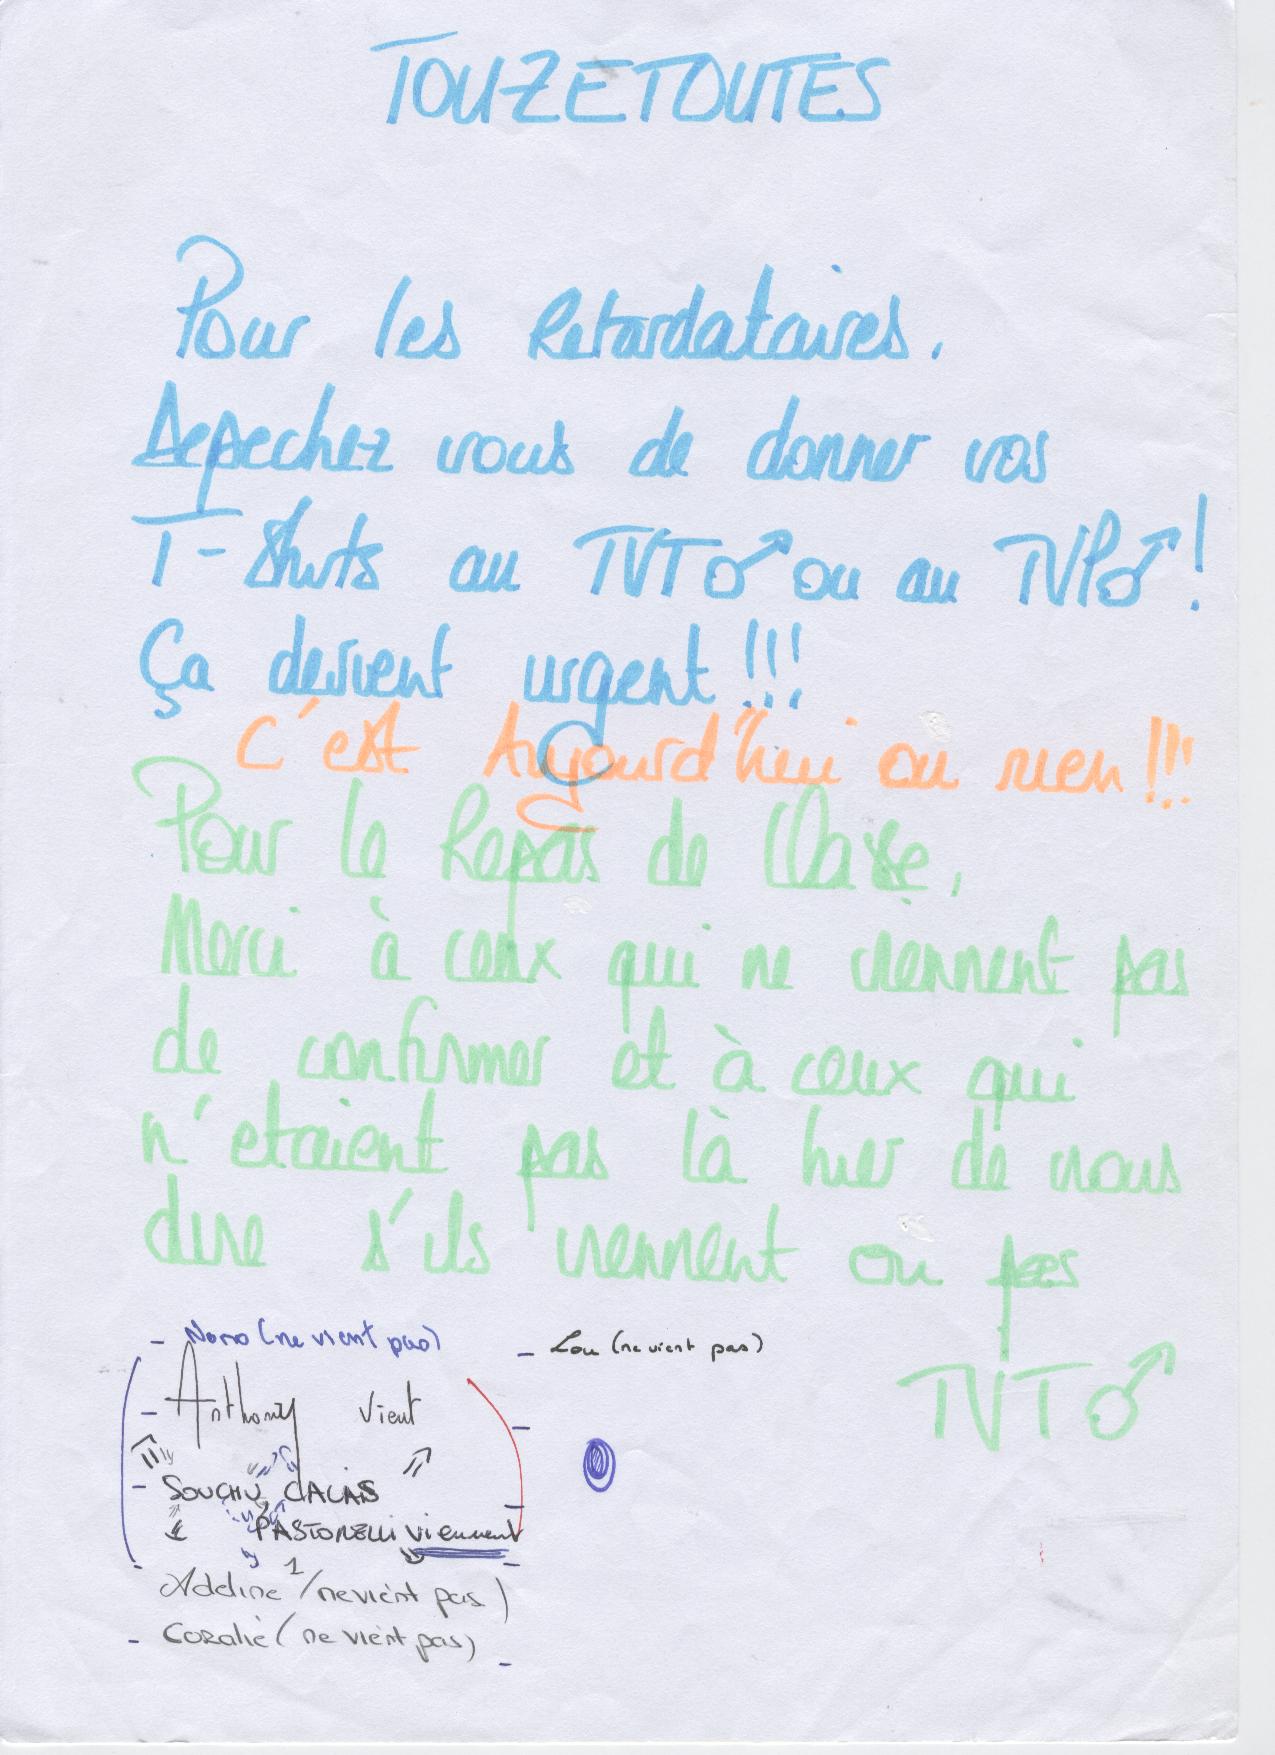 TOUZETOUTES
Pour les Retardataires,
Depechez vous de donner vos
T-Shirts au TVT♂ ou au TVP♂ !
Ça devient urgent !!!
C'est Aujourd'hui ou rien !!!
Pour le Repas de Classe,
Merci à ceux qui ne viennent pas
de confirmer et à ceux qui
n'etaient pas là hier de nous
dire s'ils viennent ou pas
TVT♂
- (ne vient pas)
- Lou (ne vient pas)
- Anthony vient
- SOUCHU, CALAIS
PASTORELLI viennent
Adeline 1 (ne vient pas)
- Coralie (ne vient pas)